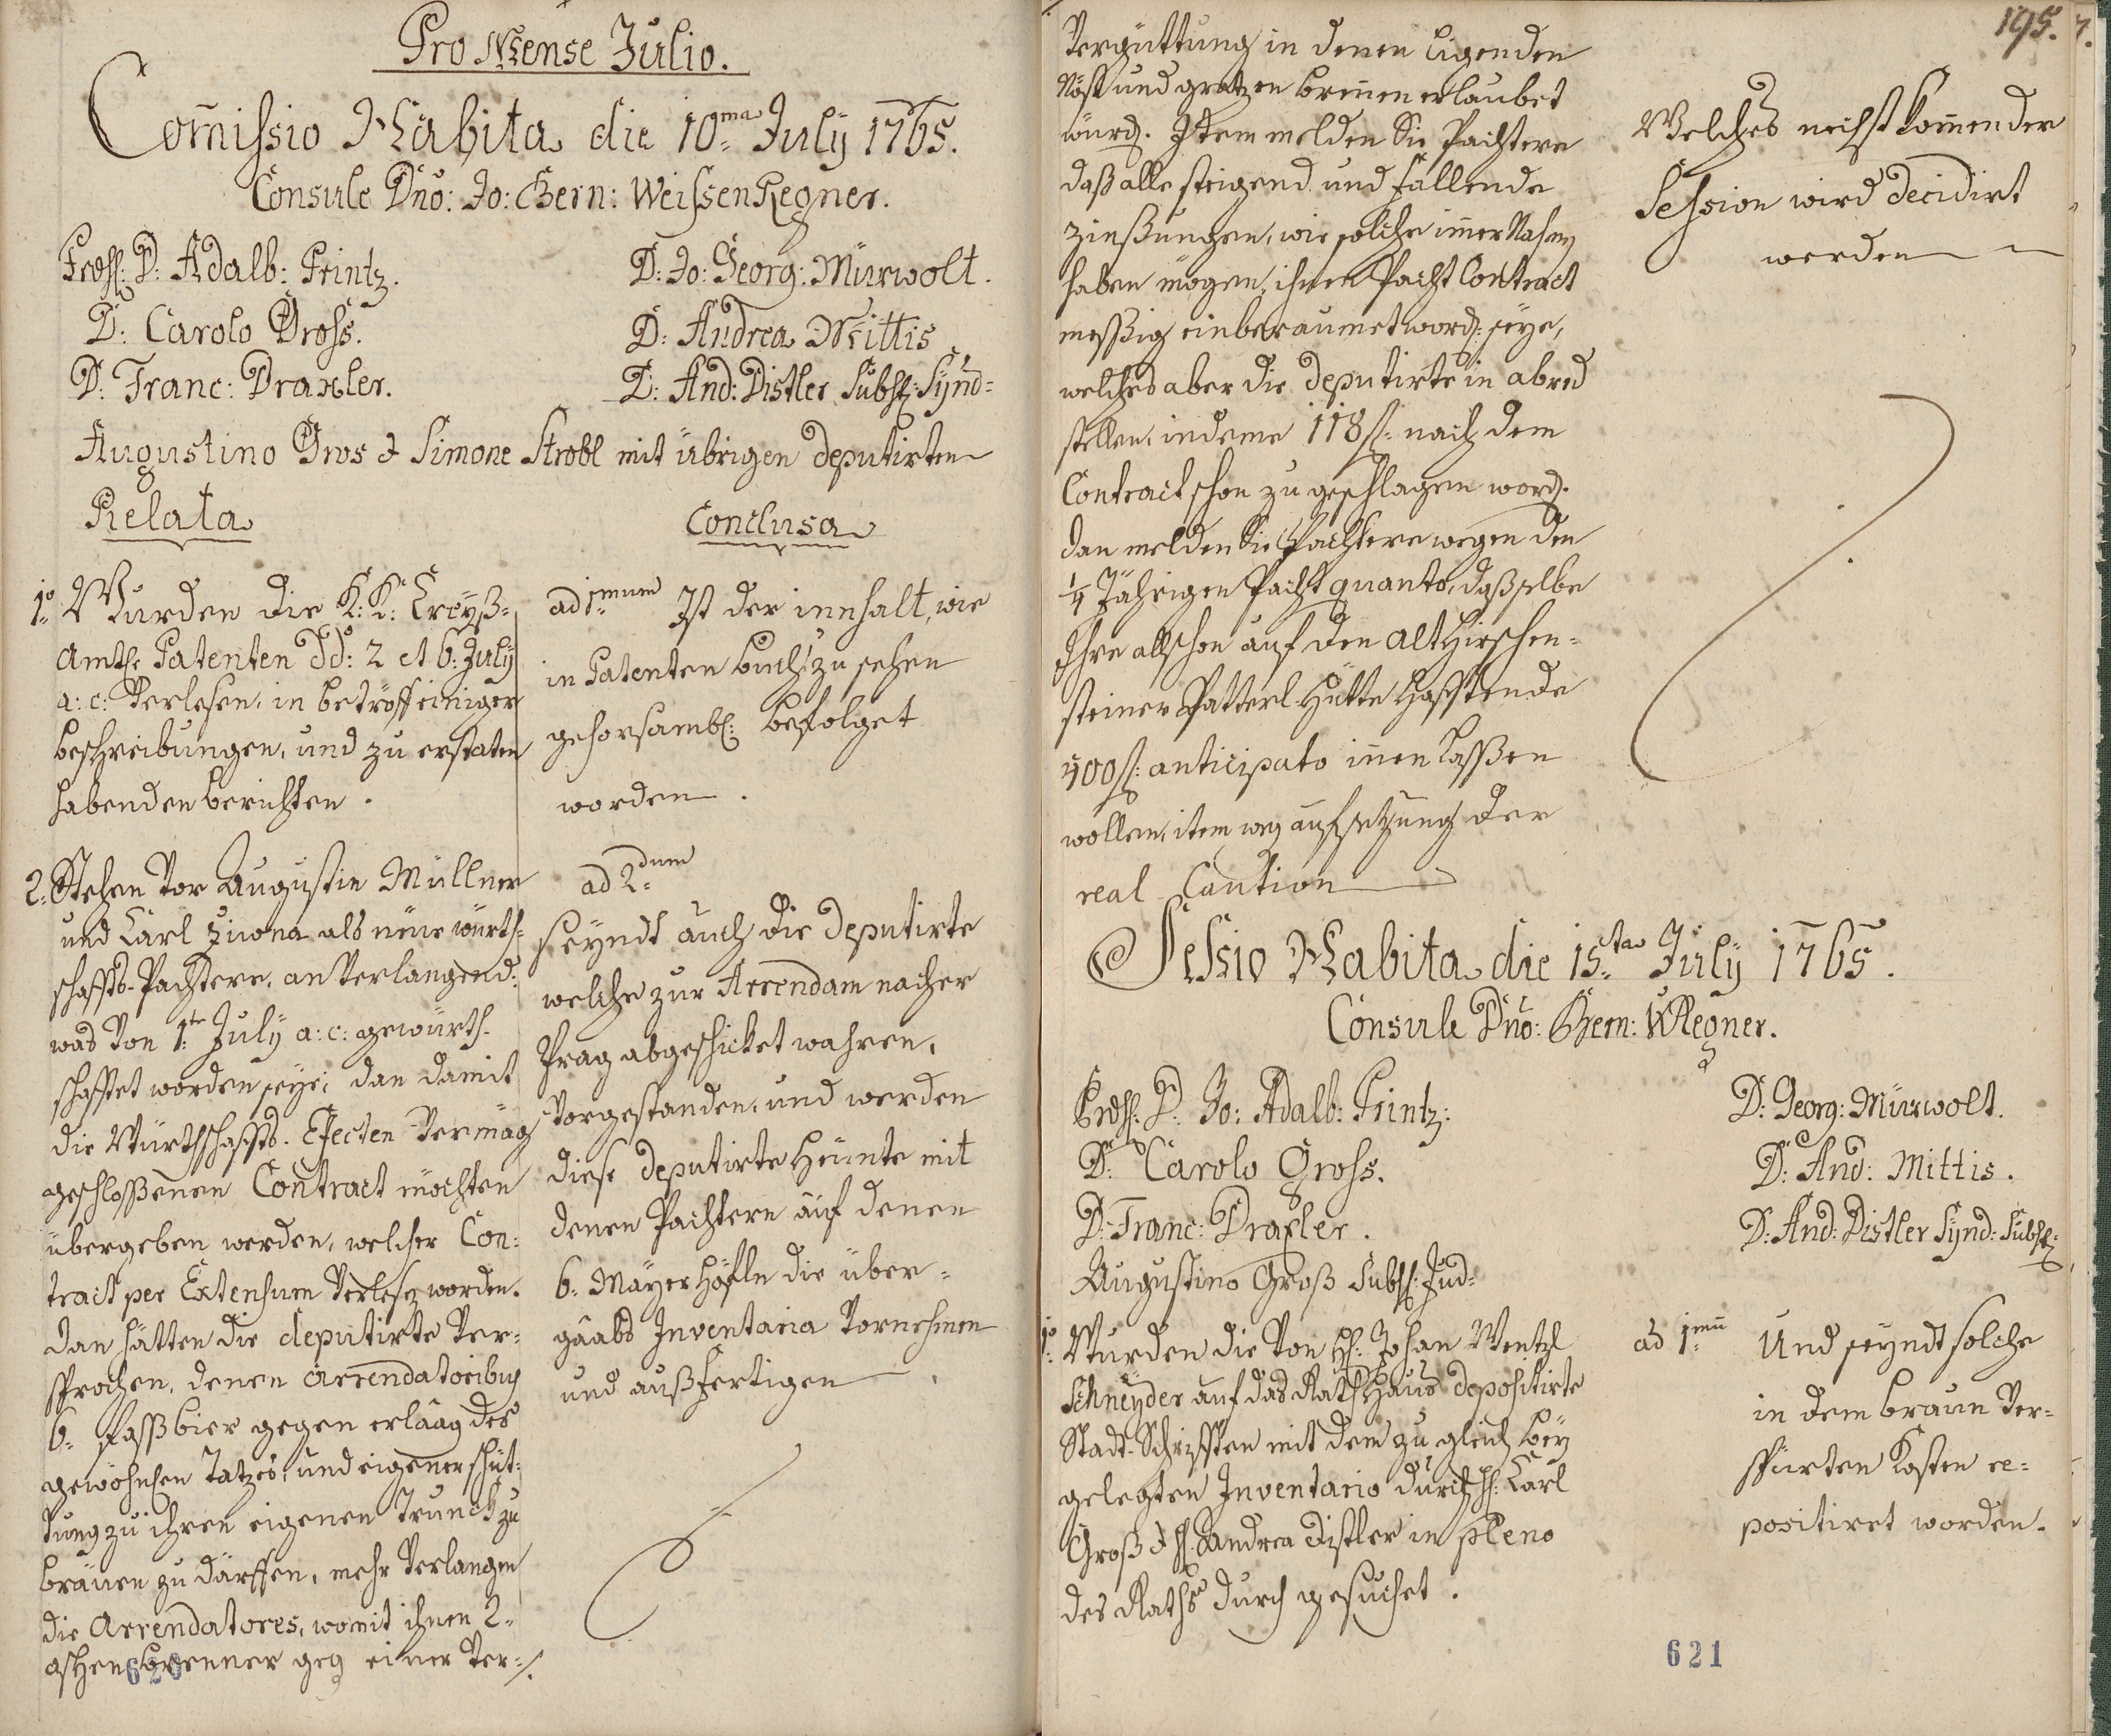 Pro Mense Julio.
Com̄issio Habita die 10ma July 1765.
Consule Dno: Jo: Bern: Weissen Regner.
Prdss: D: Adalb: Printz.
D: Carolo Gross.
D: Franc: Draxler.
D: Jo: Georg: Mürwolt.
D: Andrea Mittis
D: And: Distler Subst: Synd=
Augustino Gros & Simone Strobl mit übrigen deputirten
Relata
1o Wurden die K: K: Creÿß=
Ambts Patenten dd: 2 et 6: July
a: c: Verlesen, in betröff einiger
beschreibungen, und zu erstaten
habenden berichten.
2. Stehen Vor Augustin Müllner
und Carl Ziwna als neue würth=
schaffts-Pachtere, an Verlangend:
was Von 1te July a: c: gewürth=
schafftet worden seye, dan damit
die Würthschaffts-Efecten Vermög
geschlossenen Contract möchten
übergeben werden, welcher Con=
tract per Extensum Verlesen worden.
dan hätten die deputirte Ver=
sprochen, denen Arrendatoribus
6: fass bier gegen erlaag des
gewöhnlichen Tatzes, und eigener schüt=
tung zu ihren eigenen Trunck zu
bräuen zu därffen, mehr Verlangen
die Arrendatores, womit ihnen 2=
aschenbrenner geg einer Ver=/.
Conclusa
ad 1mum Ist der innhalt, wie
in Patenten buch zu sehen
gehorsambl: befolget
worden.
ad 2dum
seyndt auch die deputirte
welche zur Arrendam nacher
Prag abgeschicket wahren,
Vorgestanden, und werden
diese deputirte heunte mit
denen Pachtern auf denen
6: Mayerhöfln die über=
gaabs Inventaria Vornehmen
und außfertigen.
620
195. 7.
Vergüttung in denen ligenden
Nöst und gratzen brennen erlaubet
würd. Item melden die Pachtere
daß alle steigend und fallende
Zinßungen, wie solche immer Nahmen
haben mögen, ihnen Pacht Contract
messig einberaumet word: seye,
welches aber die deputirte in abred
stellen, indeme 118 fl: nach dem
Contract schon zugeschlagen word.
dan melden die Pachtere wegen den
1/4 Jährigen Pacht quanto, daß selbe
Ihre allschon auf den alt Hirschen=
steiner Patterl-Hütte hafftende
400 fl: anticipato innen lassen
wollen, item weg aufsetzung der
real Caution
Welches nechst kommender
Session wird decidirt
werden
Sessio Habita die 15ta July 1765.
Consule Dno: Bern: WRegner.
Prdss: D: Jo: Adalb: Printz:
D: Carolo Gross.
D: Franc: Draxler.
Augustino Groß Subst: Jud=
D: Georg: Mürwolt.
D: And: Mittis.
D: And: Distler Synd: Subst:
1o Wurden die Von H: Johan Wentzl
Schneyder auf das Rath Haus depositirte
Stadt-Schrifften mit dem zu gleich bey
gelegten Inventario durch H: Carl
Groß & H: Andrea Distler in pleno
des Raths durch gesuchet.
ad 1mu Und seyndt solche
in dem braun Ver=
spürten Kasten re=
positiret worden.
621